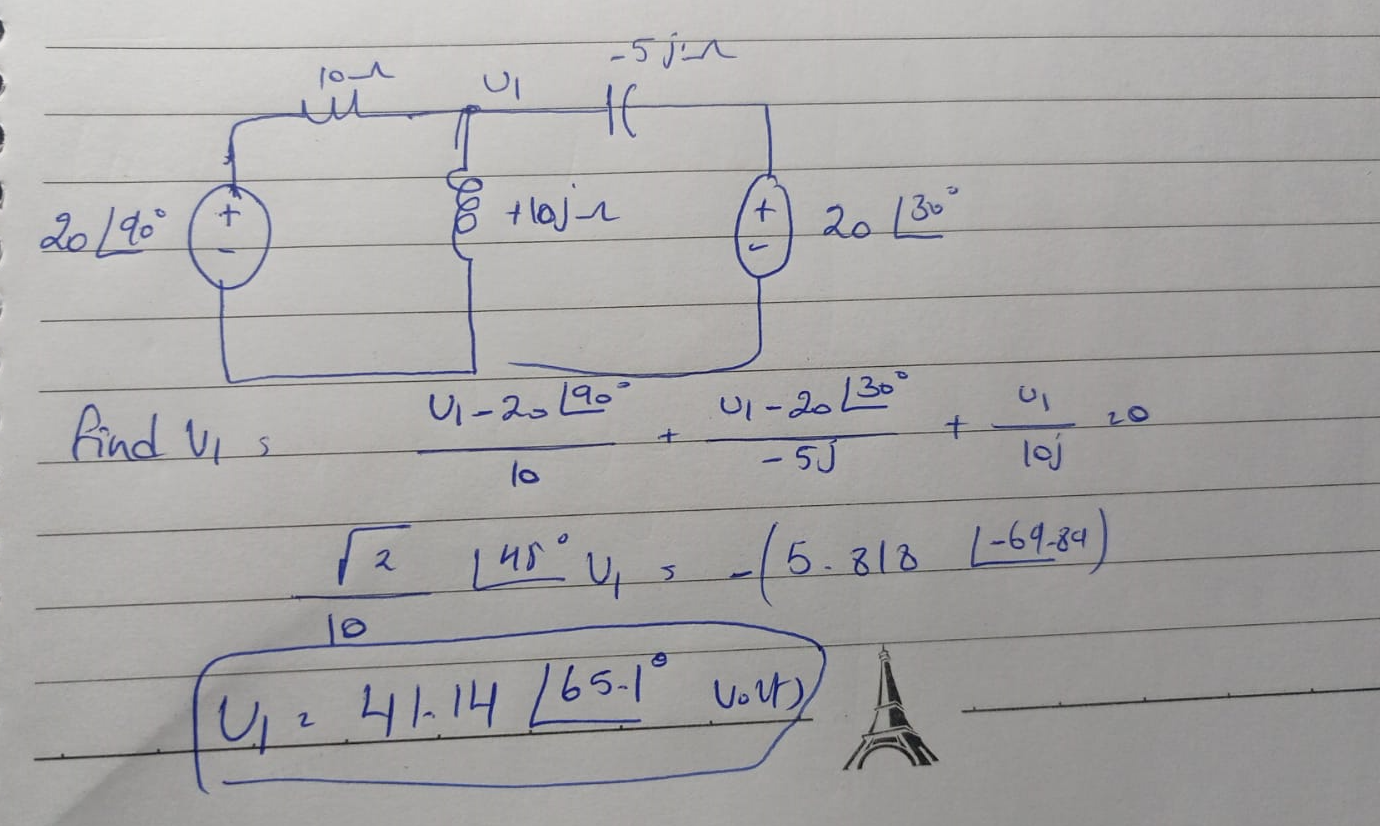 10Ω U1 -5jΩ
20∠90° + - +10jΩ + - 20∠30°
find U1 = (U1 - 20∠90°)/10 + (U1 - 20∠30°)/(-5j) + U1/10j = 0
√2/10 ∠45° U1 = -(5.818 ∠-69.84)
U1 = 41.14 ∠65.1° Volts